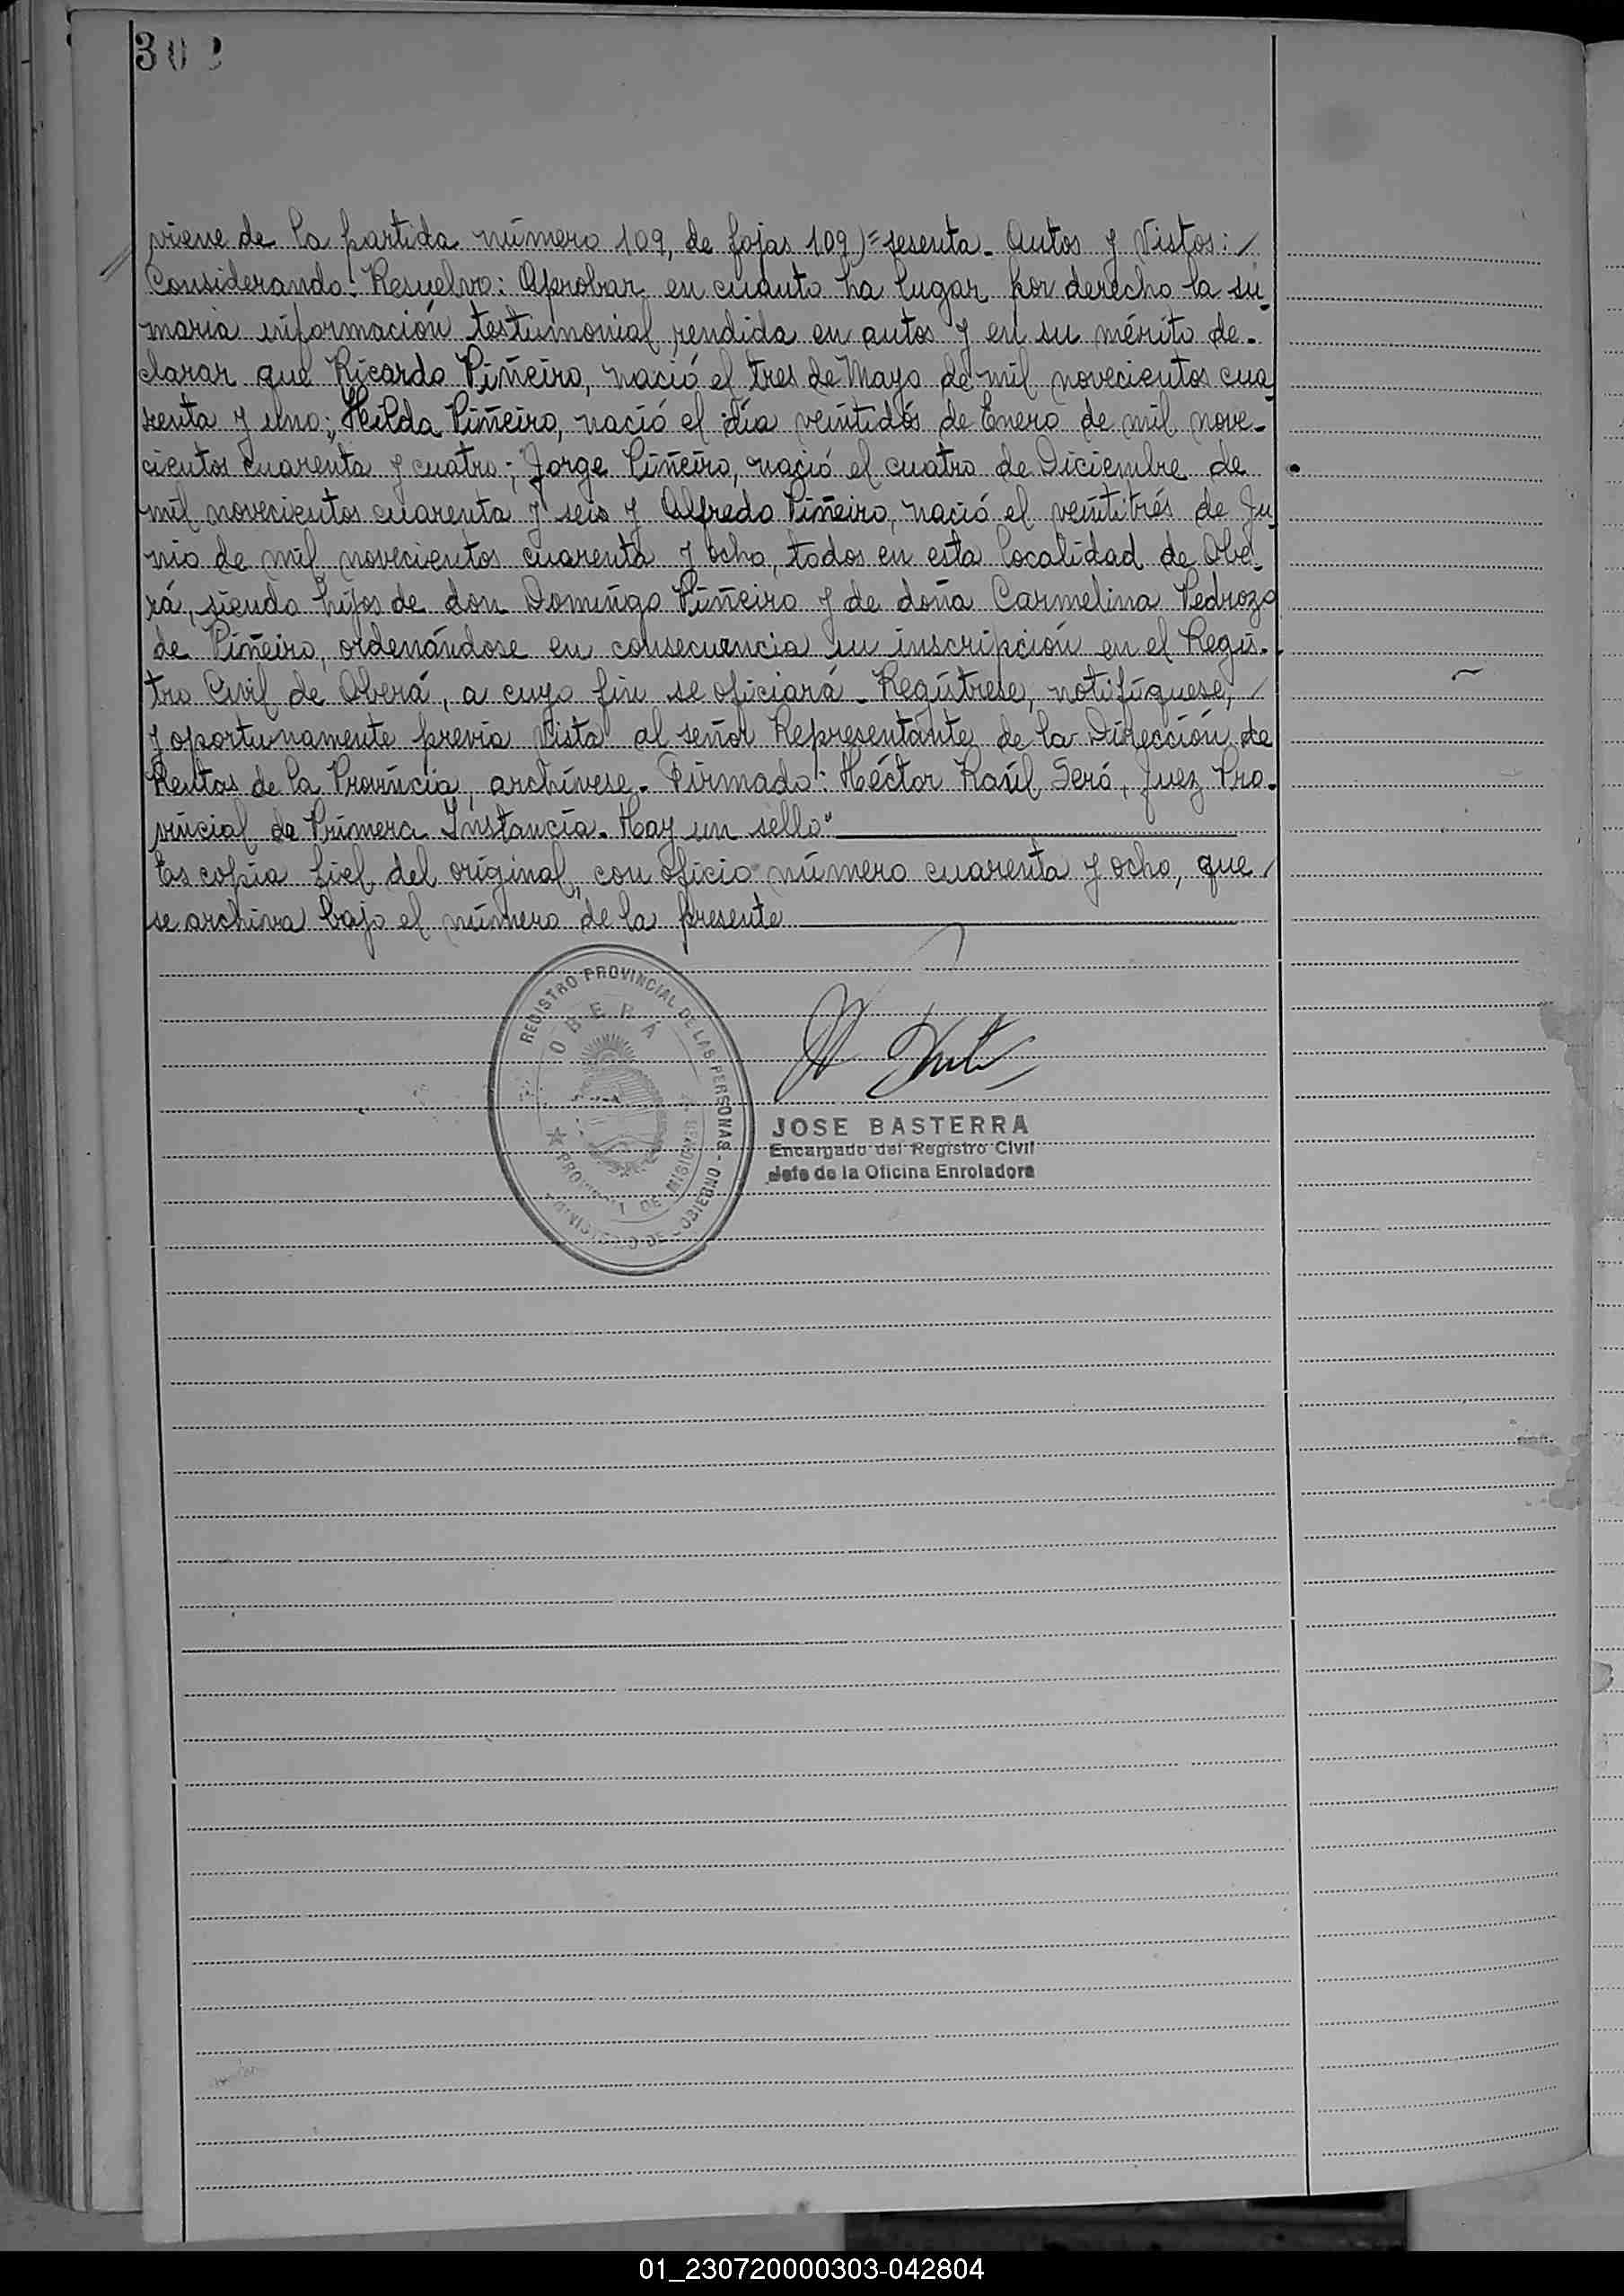 302
viene de la partida número 109, de fojas 109)=sesenta. Autos y Vistos:/
Considerando: Resuelvo: Aprobar en cuanto ha lugar por derecho la su-
maria información testimonial rendida en autos y en su mérito de-
clarar que Ricardo Piñeiro, nació el tres de Mayo de mil novecientos cua
renta y uno; Hilda Piñeiro, nació el día veintidós de Enero de mil nove-
cientos cuarenta y cuatro; Jorge Piñeiro, nació el cuatro de Diciembre de
mil novecientos cuarenta y seis y Alfredo Piñeiro, nació el veintitrés de Ju
nio de mil novecientos cuarenta y ocho, todos en esta localidad de Obe-
rá, siendo hijos de don Domingo Piñeiro y de doña Carmelina Pedrozo
de Piñeiro, ordenándose en consecuencia su inscripción en el Regis-
tro Civil de Oberá, a cuyo fin se oficiará. Regístrese, notifíquese,/
y oportunamente previa vista al señor Representante de la Dirección de
Rentas de la Provincia, archívese. Firmado: Héctor Raúl Seró, Juez Pro-
vincial de Primera Instancia. Hay un sello"
Es copia fiel del original, con oficio número cuarenta y ocho, que/
se archiva bajo el número de la presente
REGISTRO PROVINCIAL DE LAS PERSONAS - MINISTERIO DE GOBIERNO
OBERÁ
PROVINCIA DE MISIONES
JOSE BASTERRA
Encargado del Registro Civil
Jefe de la Oficina Enroladora
01_230720000303-042804